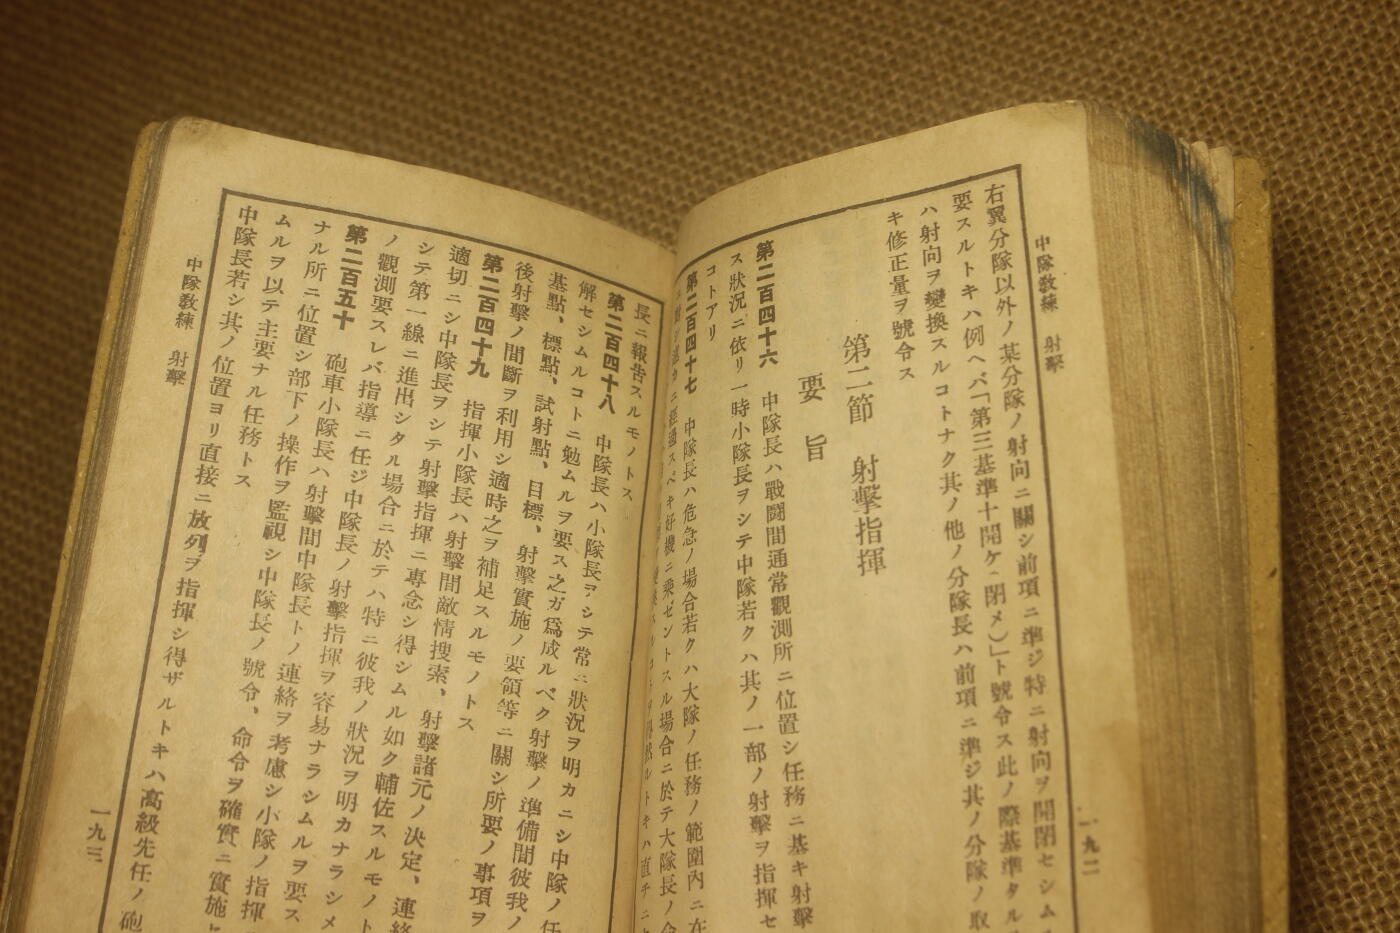 中隊教練 射擊
一九二
右翼分隊以外ノ某分隊ノ射向ニ關シ前項ニ準ジ特ニ射向ヲ開閉セシム
要スルトキハ例ヘバ「第三基準十開ケ(閉メ)」ト號令ス此ノ際基準タル
ハ射向ヲ變換スルコトナク其ノ他ノ分隊長ハ前項ニ準ジ其ノ分隊ノ取
キ修正量ヲ號令ス
第二節 射擊指揮
要旨
第二百四十六 中隊長ハ戰鬪間通常觀測所ニ位置シ任務ニ基キ射擊
ス狀況ニ依リ一時小隊長ヲシテ中隊若クハ其ノ一部ノ射擊ヲ指揮セ
コトアリ
第二百四十七 中隊長ハ危急ノ場合若クハ大隊ノ任務ノ範圍內ニ在
經過スベキ好機ニ乘ゼントスル場合ニ於テ大隊長ノ命
トキハ直チニ
長ニ報告スルモノトス
第二百四十八 中隊長ハ小隊長ヲシテ常ニ狀況ヲ明カニシ中隊ノ任
解セシムルコトニ勉ムルヲ要ス之ガ爲成ルベク射擊ノ準備間彼我ノ
基點、標點、試射點、目標、射擊實施ノ要領等ニ關シ所要ノ事項ヲ
後射擊ノ間斷ヲ利用シ適時之ヲ補足スルモノトス
第二百四十九 指揮小隊長ハ射擊間敵情搜索、射擊諸元ノ決定、連絡
適切ニシ中隊長ヲシテ射擊指揮ニ專念シ得シムル如ク輔佐スルモノト
シテ第一線ニ進出シタル場合ニ於テハ特ニ彼我ノ狀況ヲ明カナラシメ
ノ觀測要スレバ指導ニ任ジ中隊長ノ射擊指揮ヲ容易ナラシムルヲ要ス
第二百五十 砲車小隊長ハ射擊間中隊長トノ連絡ヲ考慮シ小隊ノ指揮
ナル所ニ位置シ部下ノ操作ヲ監視シ中隊長ノ號令、命令ヲ確實ニ實施
ムルヲ以テ主要ナル任務トス
中隊長若シ其ノ位置ヨリ直接ニ放列ヲ指揮シ得ザルトキハ高級先任ノ砲
中隊教練 射擊
一九三